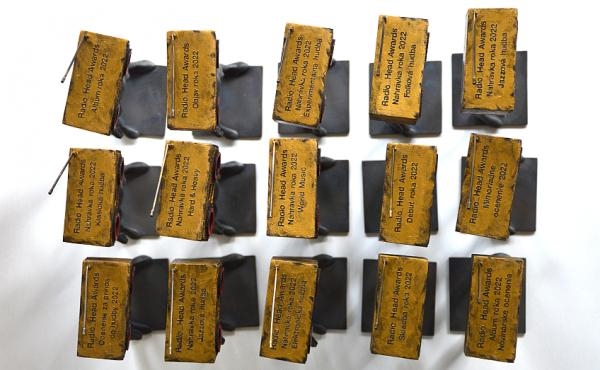 Radio_Head Awards
Album roka 2022
Radio_Head Awards
Objav roka 2022
Radio_Head Awards
Nahrávka roka 2022
Experimentálna hudba
Radio_Head Awards
Nahrávka roka 2022
Folková hudba
Radio_Head Awards
Nahrávka roka 2022
Jazzová hudba
Radio_Head Awards
Nahrávka roka 2022
Klasická hudba
Radio_Head Awards
Nahrávka roka 2022
Hard & Heavy
Radio_Head Awards
Nahrávka roka 2022
World Music
Radio_Head Awards
Debut roka 2022
Radio_Head Awards
Mimoriadne
ocenenie 2022
Radio_Head Awards
Ocenenie za prínos
do hudby 2022
Radio_Head Awards
Nahrávka roka 2022
hudba
Radio_Head Awards
Nahrávka roka 2022
Elektronická hudba
Radio_Head Awards
Skladba roka 2022
Radio_Head Awards
Album roka 2022
Novinárske ocenenie